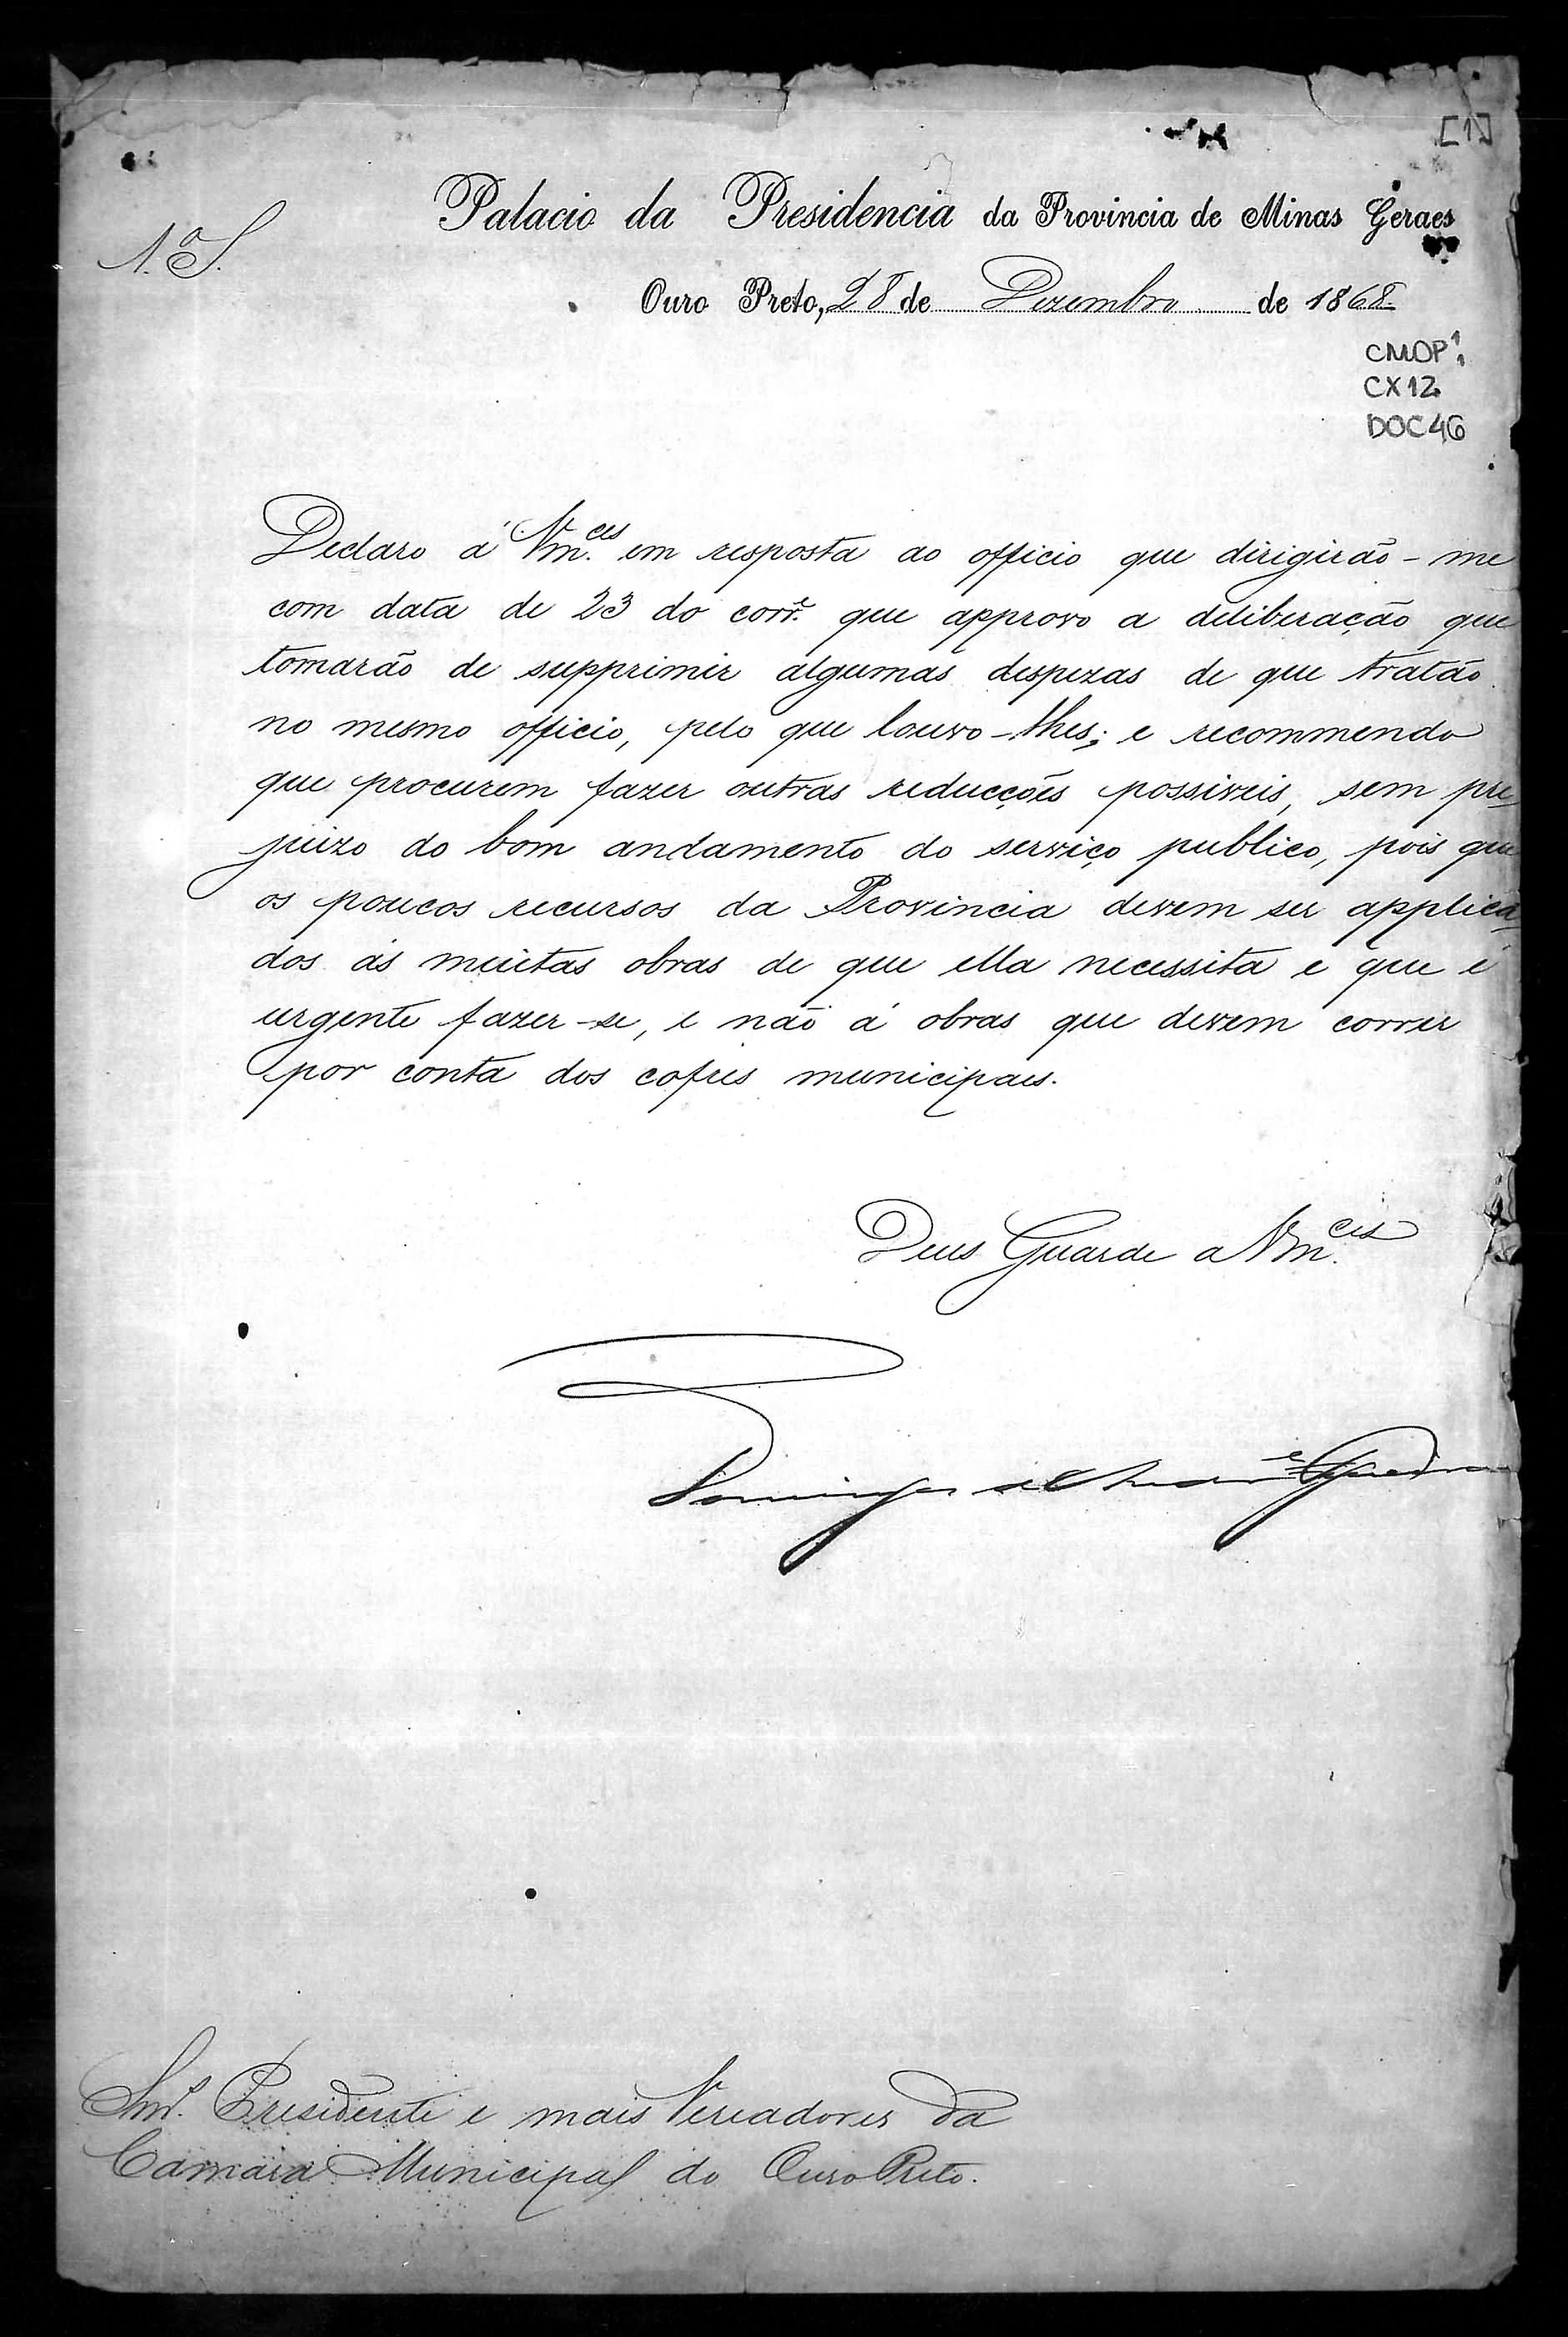 [1]
Palacio da Presidencia da Provincia de Minas Geraes
1.ª S.
Ouro Preto, 28 de Dezembro de 1868
CMOP 1
CX12
DOC46
Declaro á Vm.ces em resposta ao officio que dirigirão-me
com data de 23 do corr.e que approvo a deliberação que
tomarão de supprimir algumas despezas de que tratão
no mesmo officio, pelo que louvo-lhes; e recommendo
que procurem fazer outras reducções possiveis, sem pre
juizo do bom andamento do serviço publico, pois que
os poucos recursos da Provincia devem ser applica
dos ás muitas obras de que ella necessita e que é
urgente fazer-se, e não á obras que devem correr
por conta dos cofres municipaes.
Deus Guarde a Vm.ces
Domingos de Andr.e Figueira
Snr.s Presidente e mais Vereadores da
Camara Municipal do Ouro Preto.